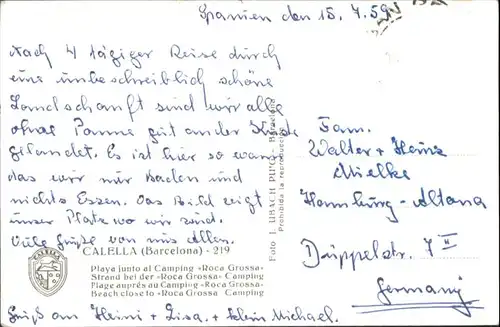 Spanien den 15. 7. 59
Nach 4 tägiger Reise durch
eine unbeschreiblich schöne
Landschaft sind wir alle
ohne Panne gut an der Küste
gelandet. Es ist hier so warm
das wir nur baden und
nichts Essen. Das Bild zeigt
unser Platz wo wir sind.
Viele Grüße von uns Allen.
CALELLA (Barcelona) - 219
Playa junto al Camping «Roca Grossa»
Strand bei der «Roca Grossa» Camping
Plage auprés au Camping «Roca Grossa»
Beach close to «Roca Grossa» Camping
CALELLA
Gruß an Heini + Lisa. + klein Michael.
Foto I. Barcelona
Prohibida la reproducción
Fam.
Walter + Heinz
Mielke
Hamburg-Altona
Düppelstr. 7 II
Germany